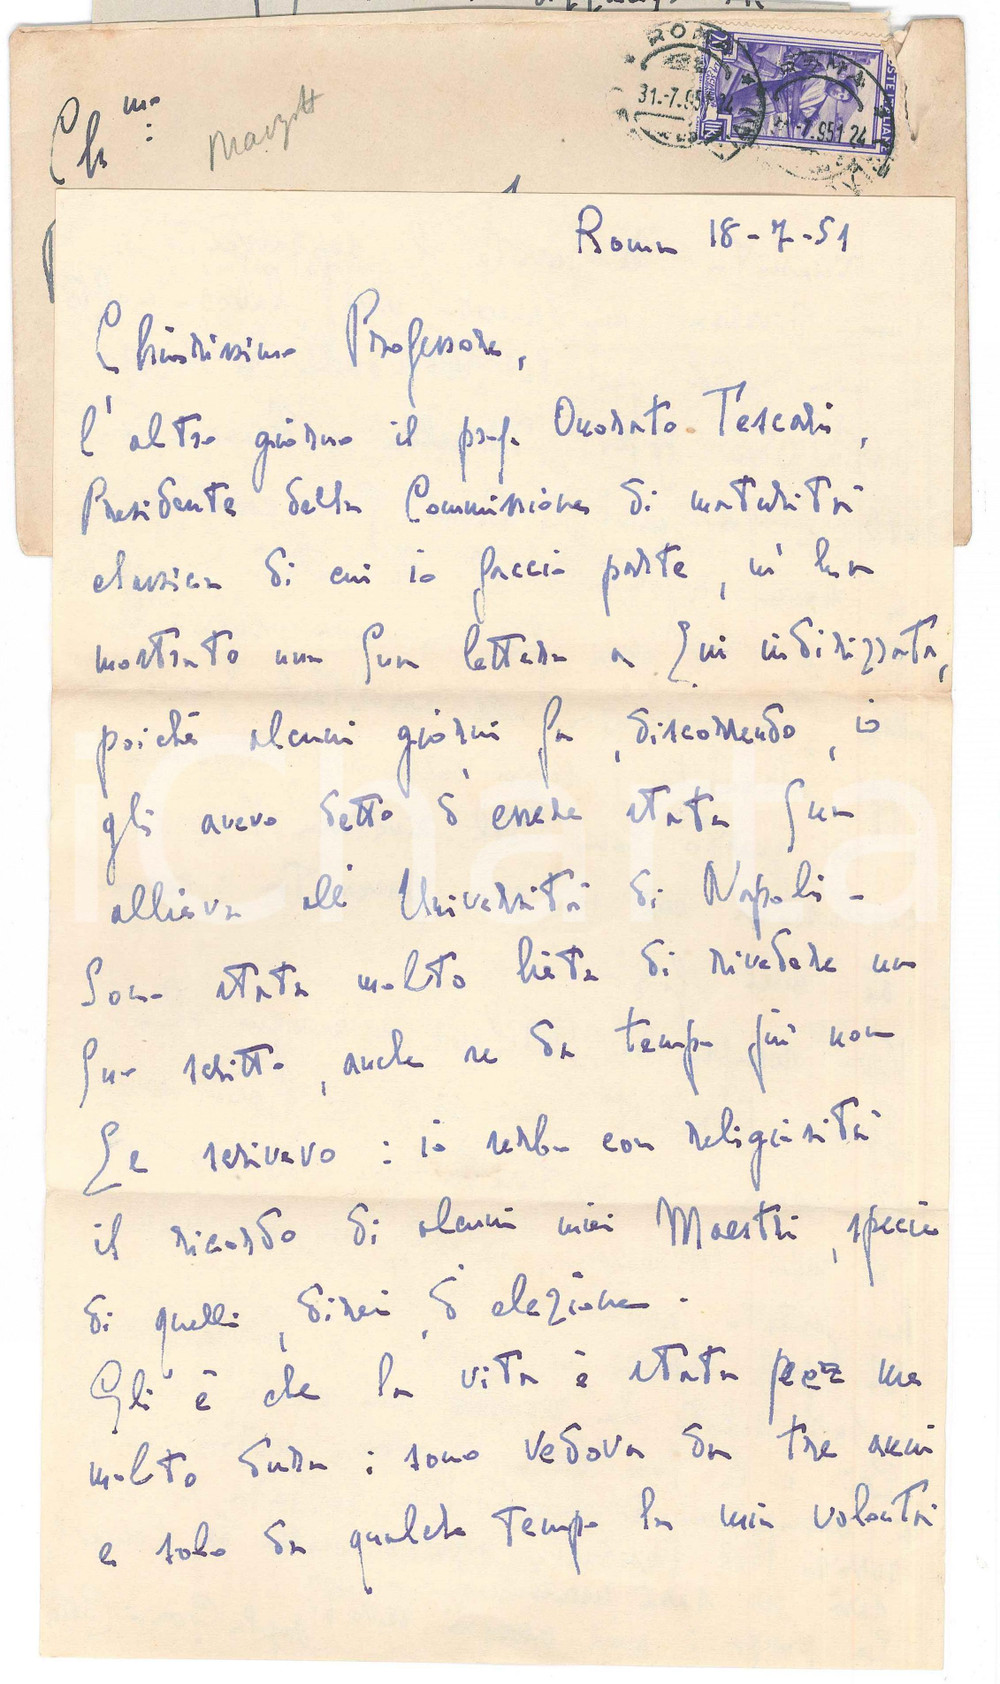 Ch.mo
ROMA
31.-7.951 24
ROMA
7.951 24
POSTE ITALIANE
Roma 18-7-51
Chiarissimo Professore,
l'altro giorno il prof. Onorato Tescari,
Presidente della Commissione di maturità
classica di cui io faccio parte, m'ha
mostrato una Sua lettera a Lui indirizzata,
poiché alcuni giorni fa, discorrendo, io
gli avevo detto d'essere stata Sua
allieva all'Università di Napoli -
Sono stata molto lieta di rivedere un
Suo scritto, anche se da tempo più non
Le scrivevo: io serbo con religiosità
il ricordo di alcuni miei Maestri, specie
di quelli, direi, d'elezione.
Gli è che la vita è stata per me
molto dura: sono vedova da tre anni
e solo da qualche tempo la mia volontà
iCharta